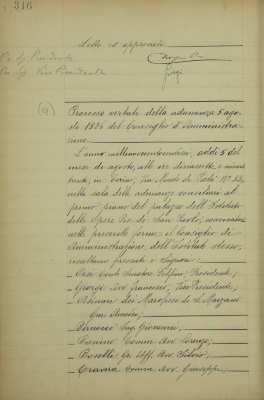 316
Letto ed approvato.
Il Sig. Presidente
Il Sig. Vice Presidente
Giorgi
(9)
Processo verbale della adunanza 5 ago-
sto 1926 del Consiglio d'Amministra-
zione
L'anno millenovecentoventisei, addì 5 del
mese di agosto, alle ore diciassette e minuti
trenta, in Torino, Via Monte di Pietà N° 32,
nella sala delle adunanze consiliari al
primo piano del palazzo dell'Istituto
delle Opere Pie di San Paolo, convocatosi
nelle prescritte forme, il Consiglio di
Amministrazione dell'Istituto stesso,
risultano presenti i Signori:
Orsi Conte Senatore Delfino, Presidente;
Giorgi Avv. Francesco, Vice Presidente;
Asinari dei Marchesi di S. Marzano
Ing. Giovanni,
Comm. Avv. Lorenzo,
Boselli Gr. Uff. Avv. Silvio;
Comm. Avv. Giuseppe;